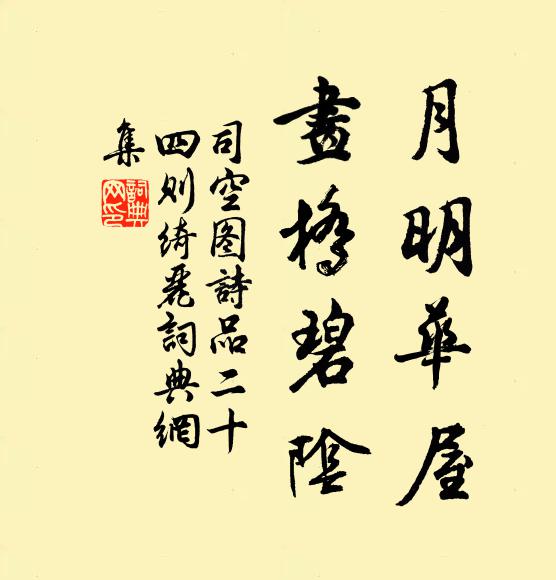 月明華屋
畫橋碧陰
司空图詩品二十
四则绮麗詞典網
集
詞典
网印